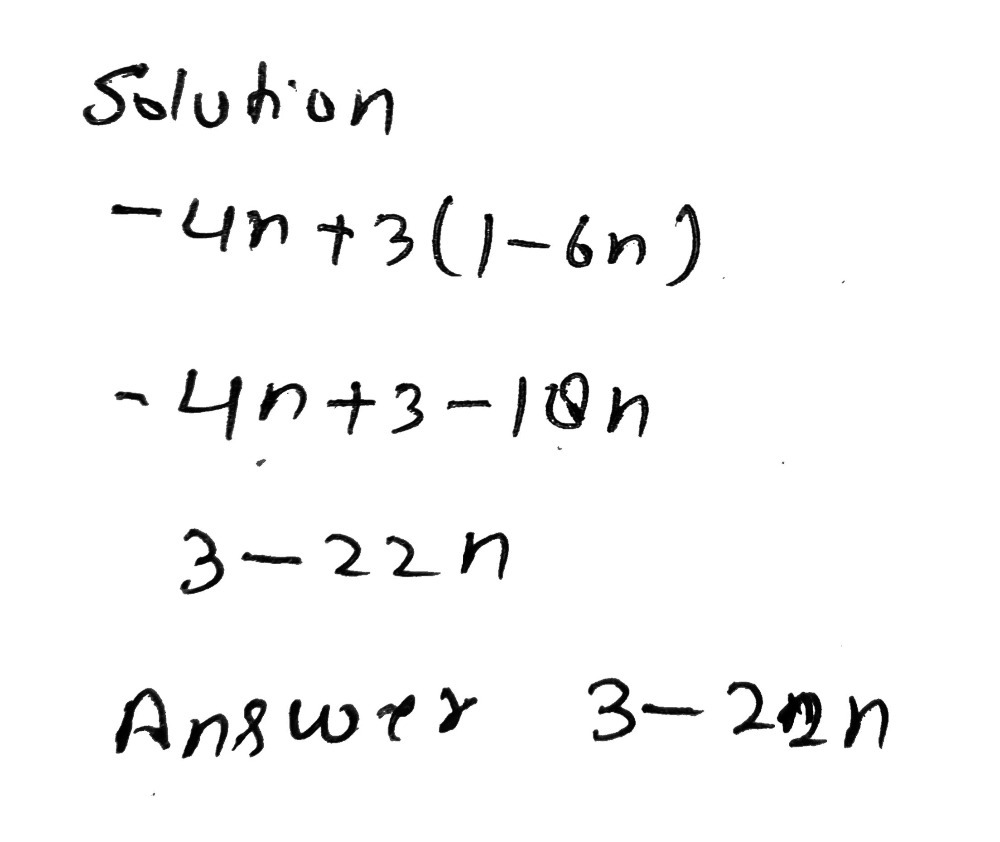 Solution
-4n+3(1-6n)
-4n+3-18n
3-22n
Answer 3-22n